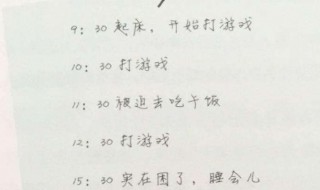 9：30 起床，开始打游戏
10：30 打游戏
11：30 被迫去吃午饭
12：30 打游戏
15：30 实在困了，睡会儿